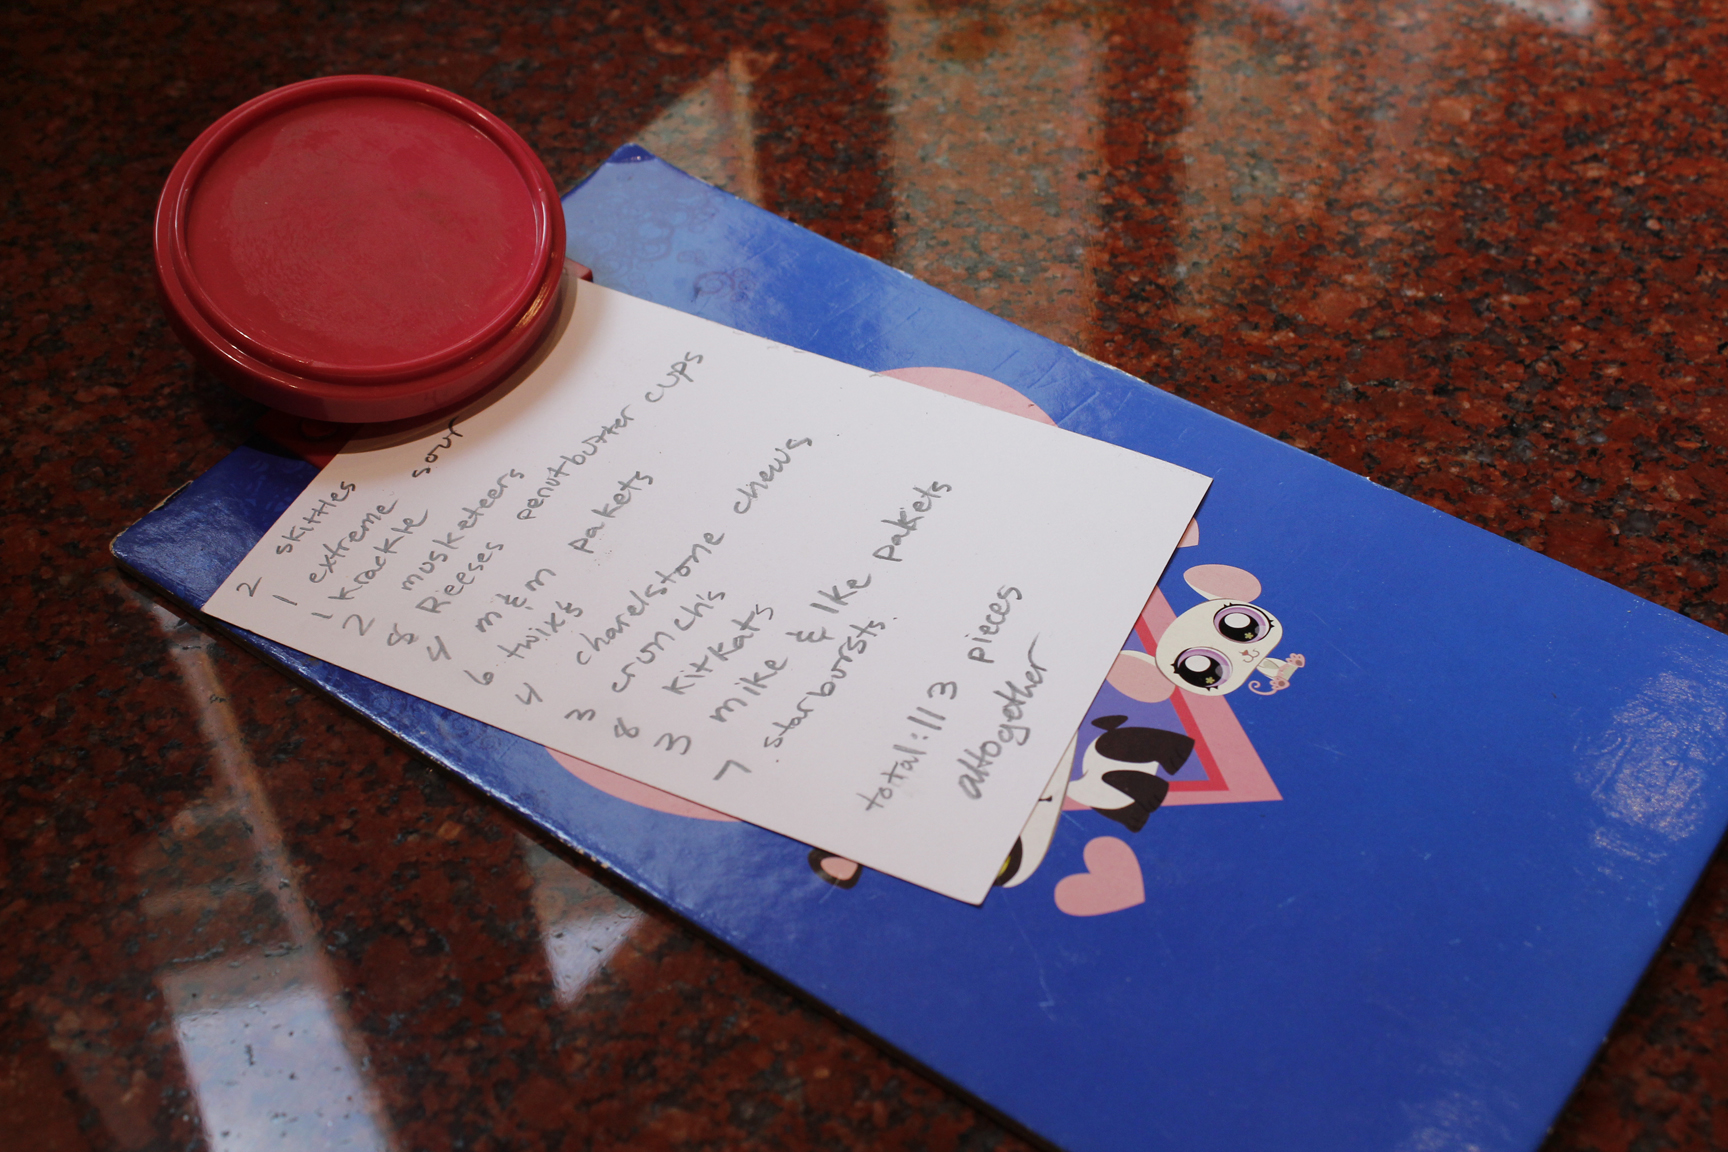 2 skittles
1 extreme sour
1 krackle
2 musketeers
8 Reeses penutbutter cups
4 m&m pakets
6 twik's
4 charelstone chews
3 crunch's
8 kitkats
3 mike & Ike pakets
7 starbursts.
total: 113 pieces
altogether